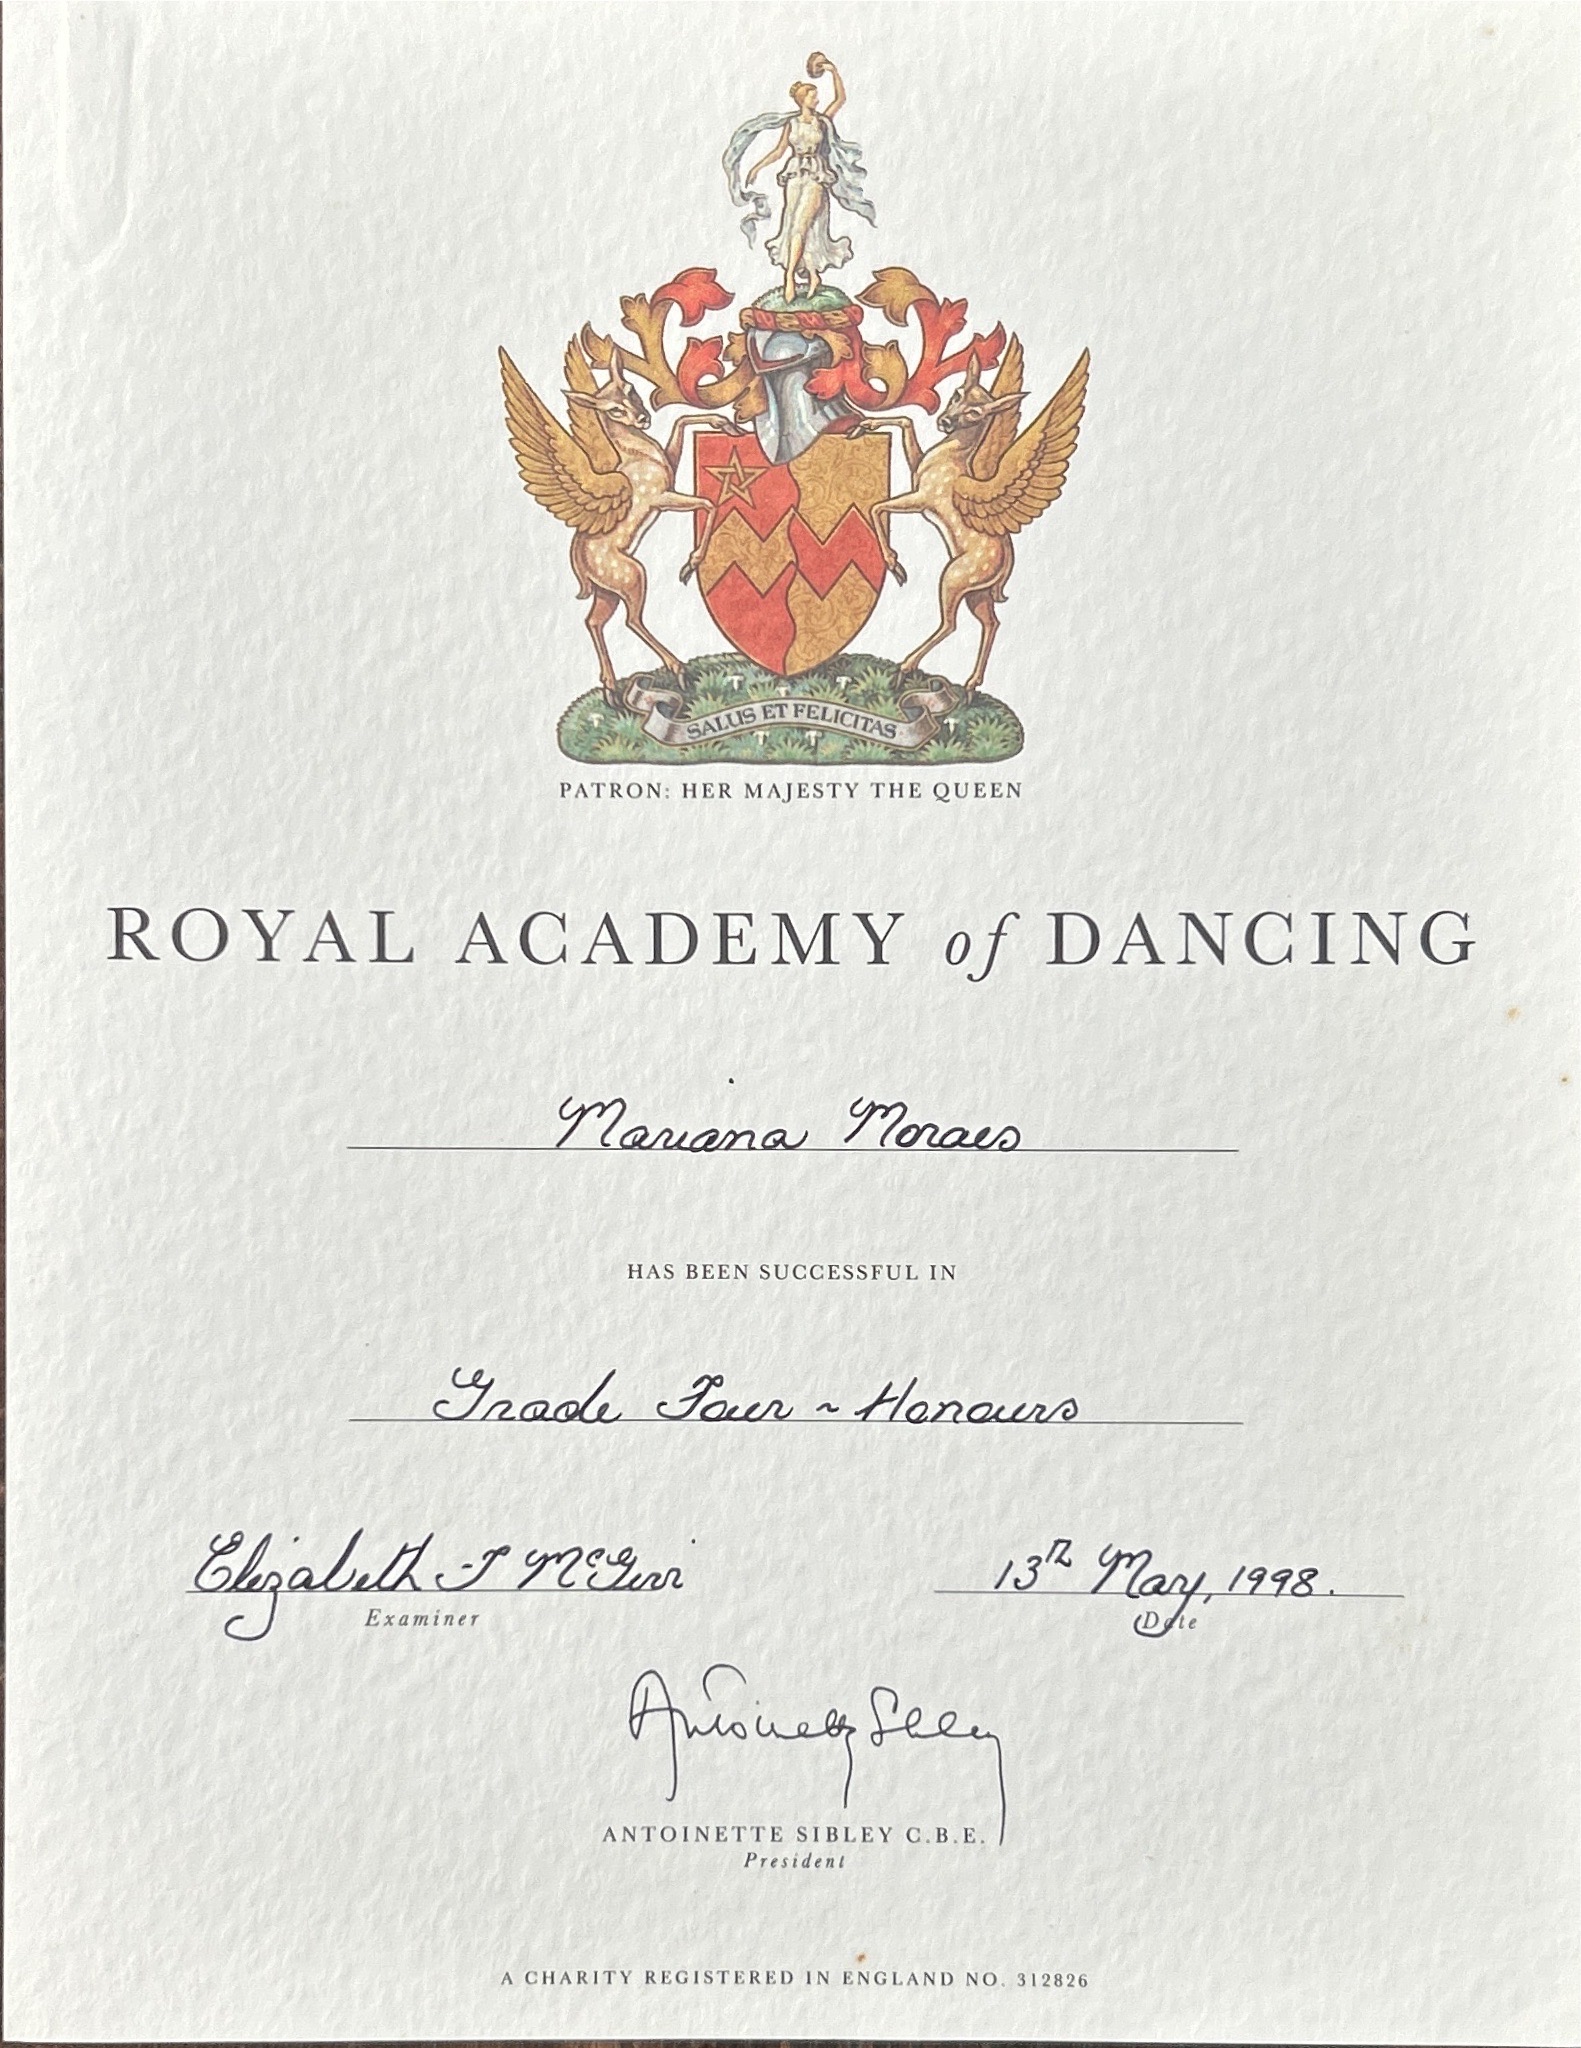 SALUS ET FELICITAS
PATRON: HER MAJESTY THE QUEEN
ROYAL ACADEMY of DANCING
Mariana Moraes
HAS BEEN SUCCESSFUL IN
Grade Four ~ Honours
Elizabeth J McGirr 13th May, 1998.
Examiner Date
Antoinette Sibley
ANTOINETTE SIBLEY C.B.E.
President
A CHARITY REGISTERED IN ENGLAND NO. 312826